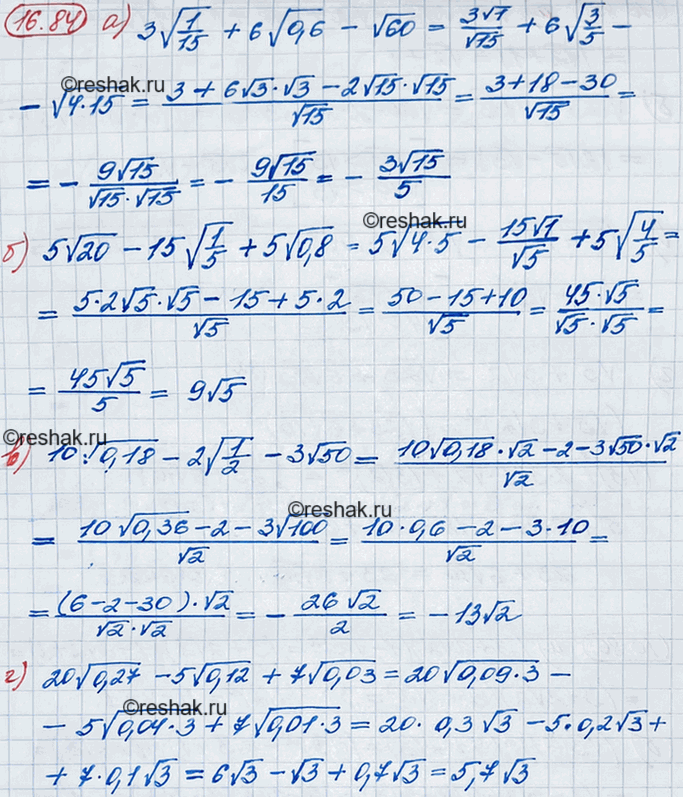 16.84 а) 3√(1/15) + 6√(0,6) − √60 = 3√1/√15 + 6√(3/5) −
©reshak.ru
− √(4·15) = (3 + 6√3·√3 − 2√15·√15)/√15 = (3+18−30)/√15 =
= − 9√15/(√15·√15) = − 9√15/15 = − 3√15/5
©reshak.ru
б) 5√20 − 15√(1/5) + 5√(0,8) = 5√(4·5) − 15√1/√5 + 5√(4/5) =
= (5·2√5·√5 − 15 + 5·2)/√5 = (50 − 15 + 10)/√5 = 45·√5/(√5·√5) =
= 45√5/5 = 9√5
©reshak.ru
в) 10·√(0,18) − 2√(1/2) − 3√50 = (10√(0,18)·√2 − 2 − 3√50·√2)/√2
©reshak.ru
= (10√(0,36) − 2 − 3√100)/√2 = (10·0,6 − 2 − 3·10)/√2 =
= (6−2−30)·√2/(√2·√2) = − 26√2/2 = − 13√2
г) 20√(0,27) − 5√(0,12) + 7√(0,03) = 20√(0,09·3) −
©reshak.ru
− 5√(0,04·3) + 7√(0,01·3) = 20·0,3√3 − 5·0,2√3 +
+ 7·0,1√3 = 6√3 − √3 + 0,7√3 = 5,7√3